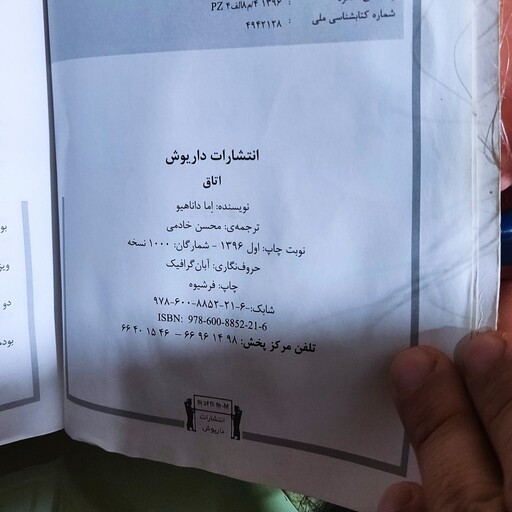 ۱۳۹۶ ۴/م۸الف PZ۴
شماره کتابشناسی ملی : ۴۹۴۲۱۲۸
انتشارات داریوش
اتاق
نویسنده: اِما داناهیو
ترجمه‌ی: محسن خادمی
نوبت چاپ: اول ۱۳۹۶ - شمارگان: ۱۰۰۰ نسخه
حروف‌نگاری: آبان‌گرافیک
چاپ: فرشیوه
شابک:-۶-۲۱-۸۸۵۲-۶۰۰-۹۷۸
ISBN: 978-600-8852-21-6
تلفن مرکز پخش: ۹۸ ۱۴ ۹۶ ۶۶ – ۴۶ ۱۵ ۴۰ ۶۶
انتشارات
داریوش
بو
ویر
دو
بوده